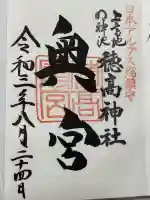 日本アルプス総鎮守
上高地
明神池
穂高神社
奥宮
令和三年八月二十四日